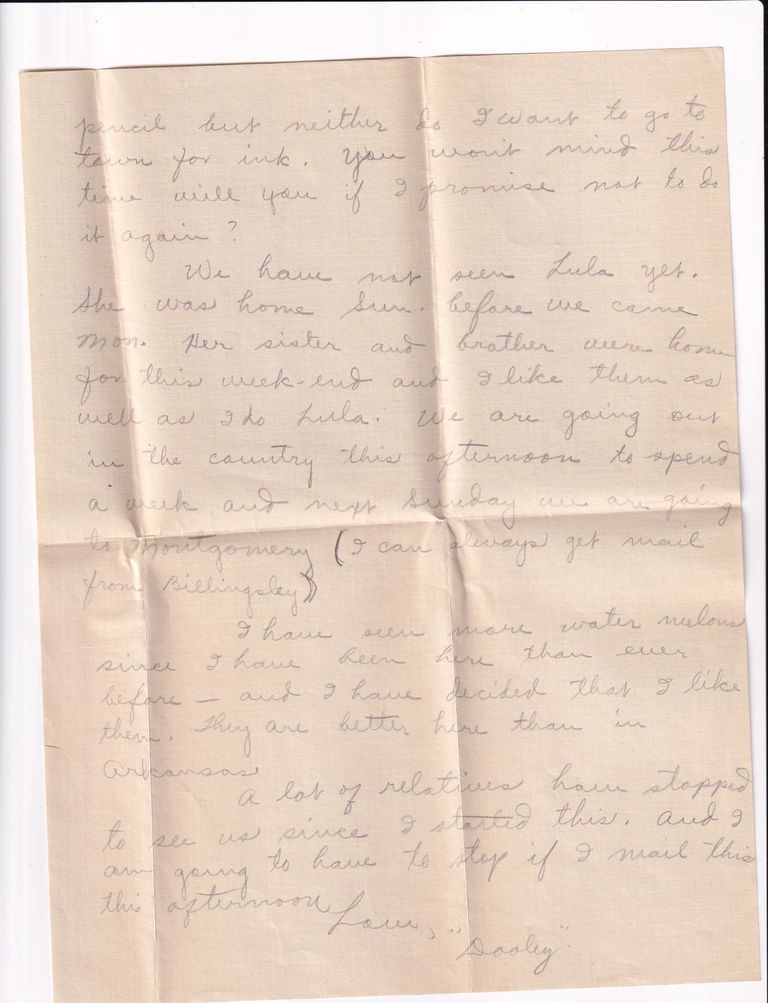 pencil but neither do I want to go to
town for ink. You won't mind this
time will you if I promise not to do
it again?
We have not seen Lula yet.
She was home Sun. before we came
Mon. Her sister and brother were home
for this week-end and I like them as
well as I do Lula. We are going out
in the country this afternoon to spend
a week and next Sunday we are going
to Montgomery (I can always get mail
from Billingsley)
I have seen more water melons
since I have been here than ever
before — and I have decided that I like
them. They are better here than in
Arkansas
A lot of relatives have stopped
to see us since I started this. And I
am going to have to stop if I mail this
this afternoon
Love, "Dooley".